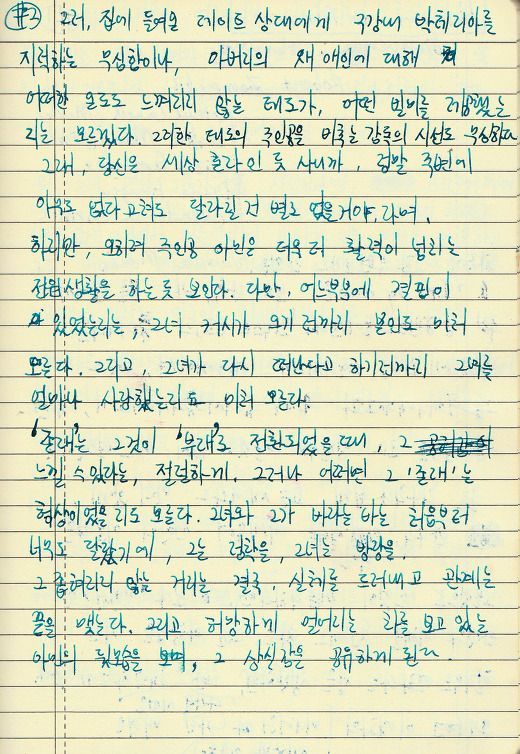 #3 그러, 집에 들여온 데이트 상대에게 구강내 박테리아를
지적하는 무심함이나, 아버지의 새 애인에 대해
어떠한 온도도 느껴지지 않는 태도가, 어떤 빌미를 제공했는
지는 모르겠다. 그러한 태도의 주인공을 비추는 감독의 시선도 무심하다
그래, 당신은 세상 혼자인 듯 사니까, 정말 주변에
아무도 없다고해도 달라질 건 별로 없을거야, 라며.
하지만, 오히려 주인공 아빈은 더욱 더 활력이 넘치는
전원생활을 하는듯 보인다. 다만, 어느부분에 결핍이
있었는지는, 그녀 거시가 오기 전까지 본인도 미처
모른다. 그리고, 그녀가 다시 떠난다고 하기전까지 그녀를
얼마나 사랑했는지도 미처 모른다.
'존재'는 그것이 '부재'로 전환되었을 때, 그
느낄 수 있다는, 절절하게. 그러나 어쩌면 그 '존재'는
형상이었을 지도 모른다. 그녀와 그가 바라는 바는 처음부터
너무도 달랐기에, 그는 정착을, 그녀는 방랑을.
그 좁혀지지 않는 거리는 결국, 실체를 드러내고 관계는
끝을 맺는다. 그리고 허망하게 멀어지는 차를 보고 있는
아빈의 뒷모습을 보며, 그 상실감을 공유하게 된다.